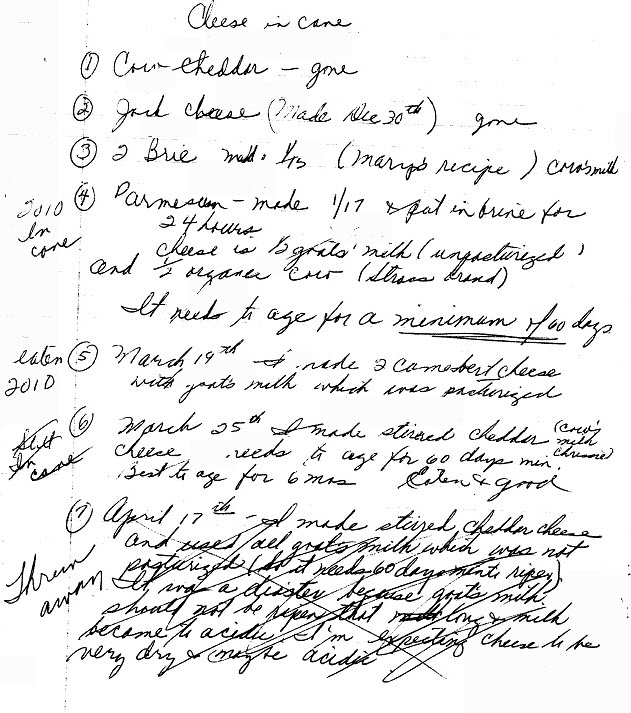 Cheese in cave
① Cow cheddar - gone
② Jack cheese (Made Dec 30th) gone
③ 2 Brie made 1/15 (Mary's recipe) cow's milk
④ Parmesan - made 1/17 & put in brine for
2010
In
cave
24 hours
cheese is ½ goats' milk (unpasturized)
and ½ organic cow (Straus brand)
It needs to age for a minimum of 60 days
eaten
2010
⑤ March 19th I made 2 Camesbert cheese
with goats milk which was pasturized
Still
In
cave
⑥ March 25th I made stirred cheddar (cow's
milk
cheese needs to age for 60 days min.
Best to age for 6 mos Eaten & good
Threw
away
⑦ April 17th - I made stirred cheddar cheese
and used all goats milk which was not
pasturized (so it needs 60 days
It was a disaster because goats milk
should not be ripen that long & milk
become to acidic I'm expecting cheese to be
very dry & maybe acidic